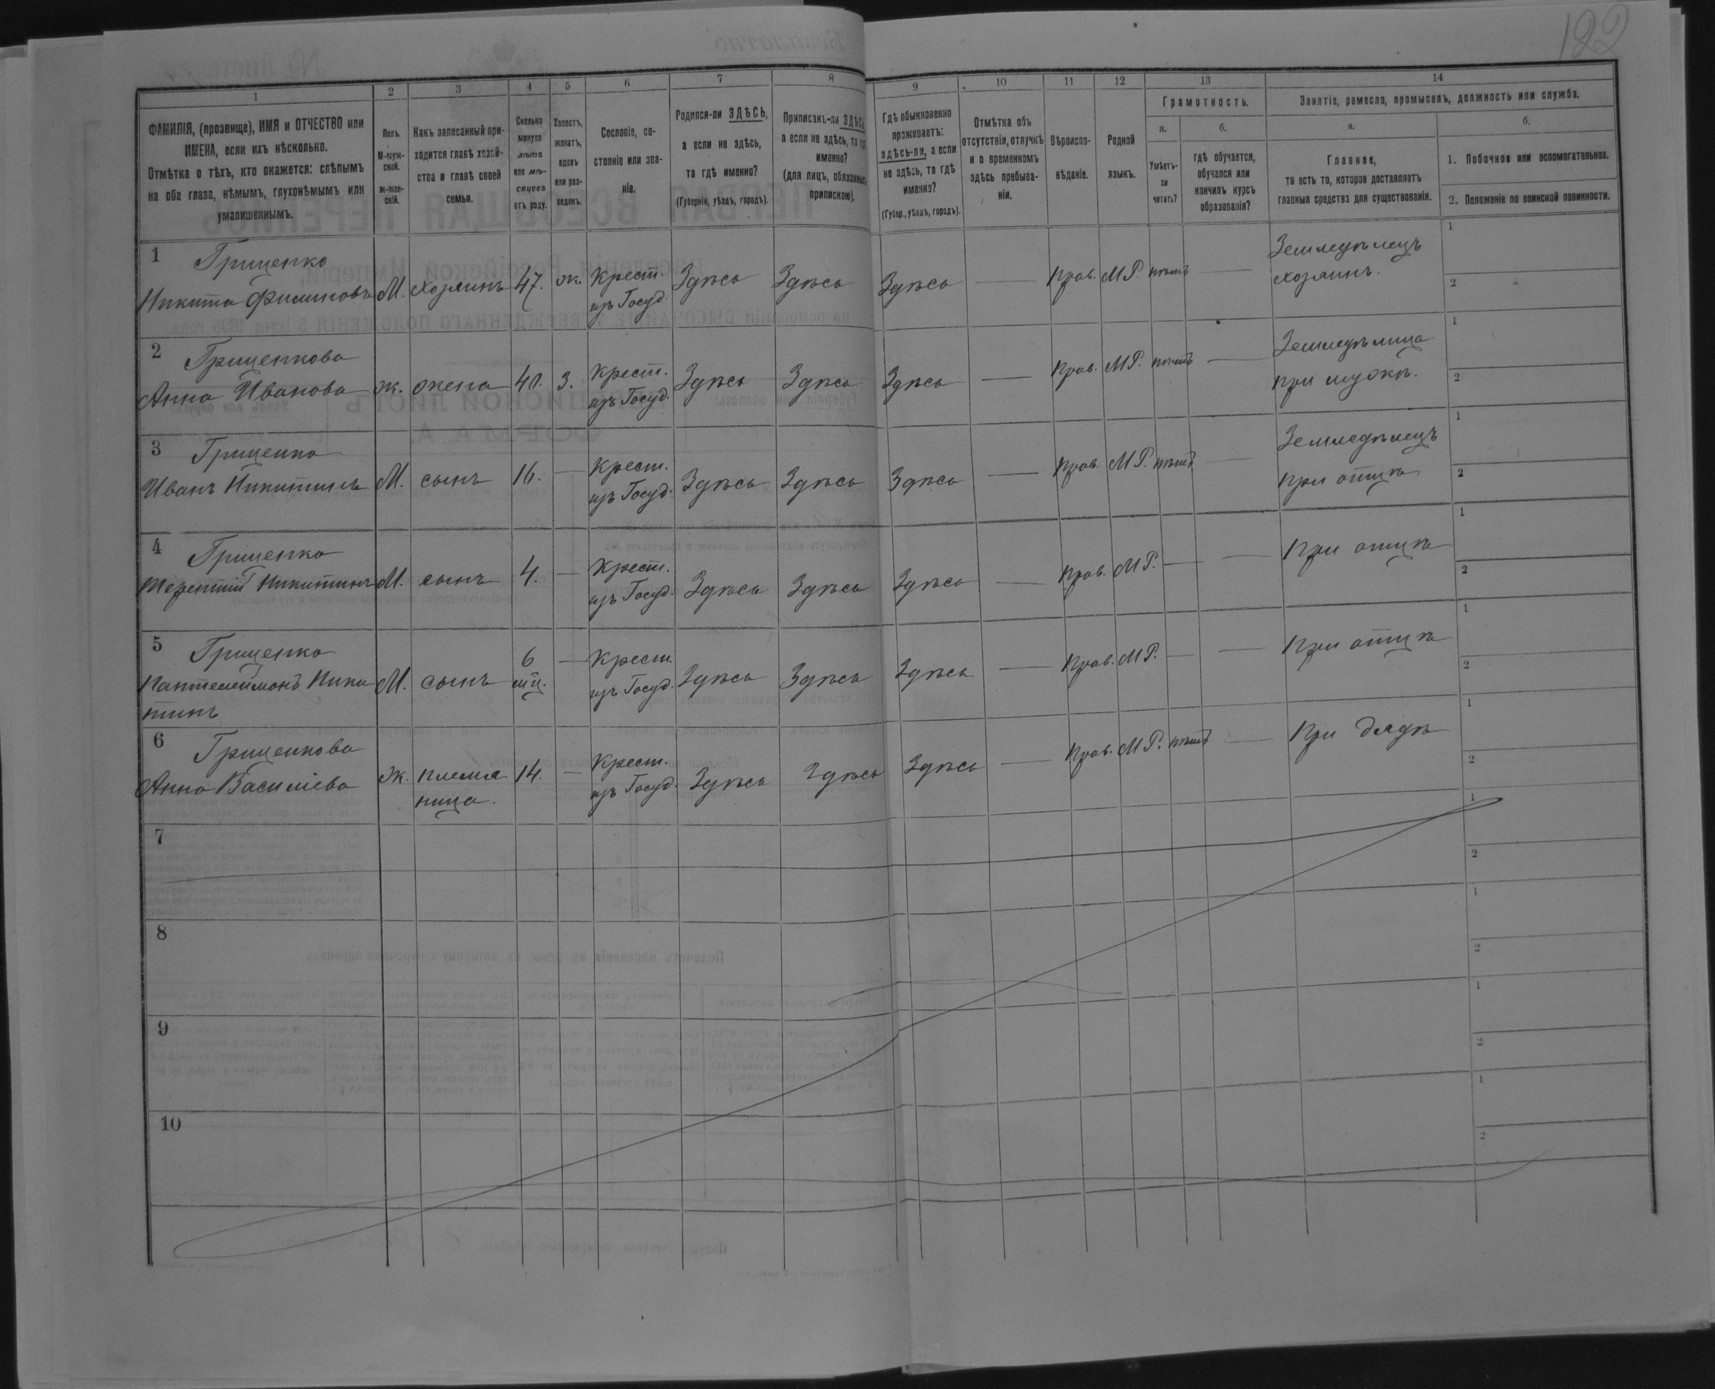 122
1 2 3 4 5 6 7 8 9 10 11 12 13 14
ФАМИЛІЯ, (прозвище), ИМЯ и ОТЧЕСТВО или
ИМЕНА, если ихъ нѣсколько.
Отмѣтка о тѣхъ, кто окажется: слѣпымъ
на оба глаза, нѣмымъ, глухонѣмымъ или
умалишеннымъ.
Полъ.
М-муж-
ской.
ж-жен-
скій.
Какъ записанный при-
ходится главѣ хозяй-
ства и главѣ своей
семьи.
Сколько
минуло
лѣтъ
или мѣ-
сяцевъ
отъ роду.
Холостъ,
женатъ,
вдовъ
или раз-
веденъ.
Сословіе, со-
стояніе или зва-
ніе.
Родился-ли ЗДѢСЬ,
а если не здѣсь,
то гдѣ именно?
(Губернія, уѣздъ, городъ).
Приписанъ-ли ЗДѢСЬ,
а если не здѣсь, то гдѣ
именно?
(для лицъ, обязанныхъ
припискою).
Гдѣ обыкновенно
проживаетъ:
здѣсь-ли, а если
не здѣсь, то гдѣ
именно?
(Губер., уѣздъ, городъ).
Отмѣтка объ
отсутствіи, отлучкѣ
и о временномъ
здѣсь пребыва-
ніи.
Вѣроиспо-
вѣданіе.
Родной
языкъ.
Грамотность.
а.
Умѣетъ-
ли
читать?
б.
гдѣ обучается,
обучался или
кончилъ курсъ
образованія?
Занятіе, ремесло, промыселъ, должность или служба.
а.
Главное,
то есть то, которое доставляетъ
главныя средства для существованія.
б.
1. Побочное или вспомогательное.
2. Положеніе по воинской повинности.
1 Гриценко Землѣделецъ 1
Никита Филиповъ М. хозяинъ 47. ж. Крест. изъ Госуд. Здѣсь Здѣсь Здѣсь — Прав. М.Р. нѣтъ — хозяинъ. 2
2 Гриценкова Земледѣлица 1
Анна Иванова ж. жена 40. З. Крест. изъ Госуд. Здѣсь Здѣсь Здѣсь — Прав. М.Р. нѣтъ — при мужѣ. 2
3 Гриценко Земледѣлецъ 1
Иванъ Никитинъ М. сынъ 16. — Крест. изъ Госуд. Здѣсь Здѣсь Здѣсь — Прав. М.Р. нѣтъ — при отцѣ 2
4 Гриценко 1
Терентій Никитинъ М. сынъ 4. — Крест. изъ Госуд. Здѣсь Здѣсь Здѣсь — Прав. М.Р. — — При отцѣ 2
5 Гриценко 1
Пантелеймонъ Ники М. сынъ 6 мц. — Крест. изъ Госуд. Здѣсь Здѣсь Здѣсь — Прав. М.Р. — — При отцѣ 2
тинъ
6 Гриценкова 1
Анна Василіева ж. племя 14. — Крест. изъ Госуд. Здѣсь Здѣсь Здѣсь — Прав. М.Р. нѣтъ — При дядѣ 2
ница.
7 1
2
8 1
2
9 1
2
10 1
2